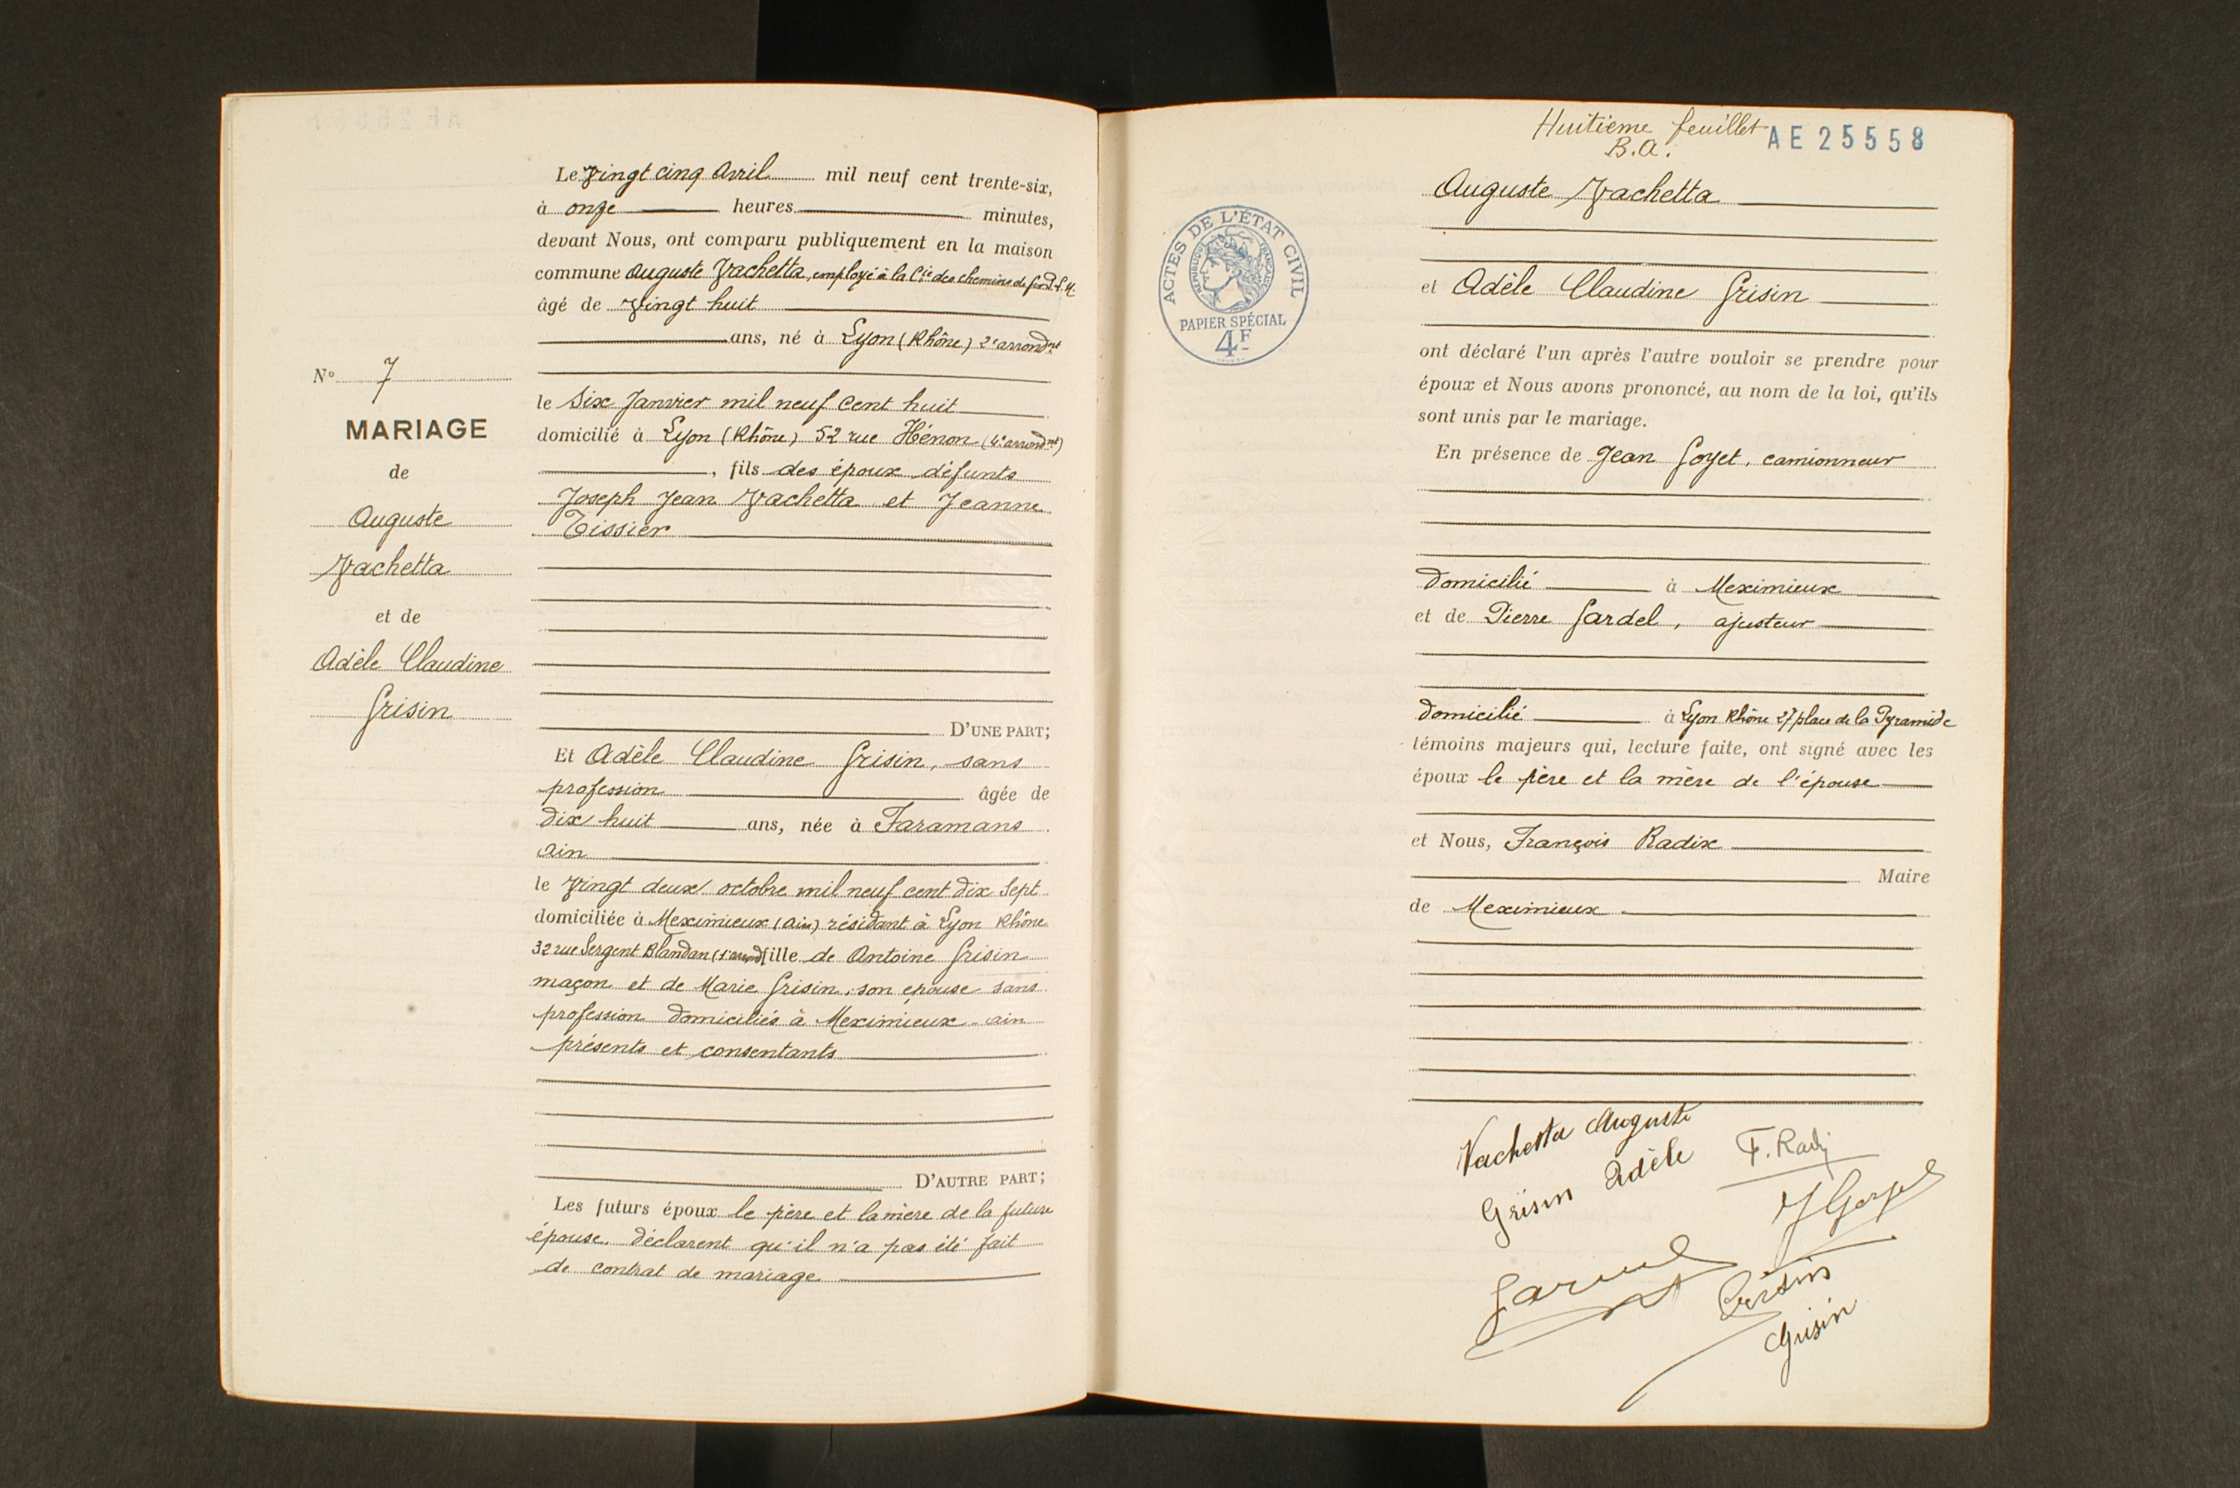 N° 7
MARIAGE
de
Auguste
Vachetta
et de
Adèle Claudine
Grisin
Le Vingt cinq Avril mil neuf cent trente-six,
à onze heures minutes,
devant Nous, ont comparu publiquement en la maison
commune Auguste Vachetta, employé à la Cie des chemins de fer P.L.M.
âgé de Vingt huit
ans, né à Lyon (Rhône) 2e arrondnt
le Six Janvier mil neuf Cent huit
domicilié à Lyon (Rhône) 52 rue Hénon (4e arrondnt)
, fils des époux défunts
Joseph Jean Vachetta et Jeanne
Tissier
D'UNE PART;
Et Adèle Claudine Grisin, sans
profession âgée de
dix huit ans, née à Faramans
ain
le Vingt deux octobre mil neuf cent dix Sept
domiciliée à Meximieux (ain) résidant à Lyon Rhône
32 rue Sergent Blandan (1e arrond fille de Antoine Grisin
maçon et de Marie Grisin, son épouse sans
profession domiciliés à Meximieux ain
présents et consentants
D'AUTRE PART;
Les futurs époux le père et la mère de la future
épouse. déclarent qu'il n'a pas été fait
de contrat de mariage
Huitième feuillet
B.A.
AE 25558
ACTES DE L'ÉTAT CIVIL
RÉPUBLIQUE FRANÇAISE
PAPIER SPÉCIAL
4F
Auguste Vachetta
et Adèle Claudine Grisin
ont déclaré l'un après l'autre vouloir se prendre pour
époux et Nous avons prononcé, au nom de la loi, qu'ils
sont unis par le mariage.
En présence de Jean Goyet, camionneur
domicilié à Meximieux
et de Pierre Gardel, ajusteur
domicilié à Lyon Rhône 27 place de la Pyramide
témoins majeurs qui, lecture faite, ont signé avec les
époux le père et la mère de l'épouse
et Nous, François Radix
Maire
de Meximieux
Vachetta Auguste
Grisin Adèle
F. Radix
J Goyet
Gardel
Grisin
Grisin